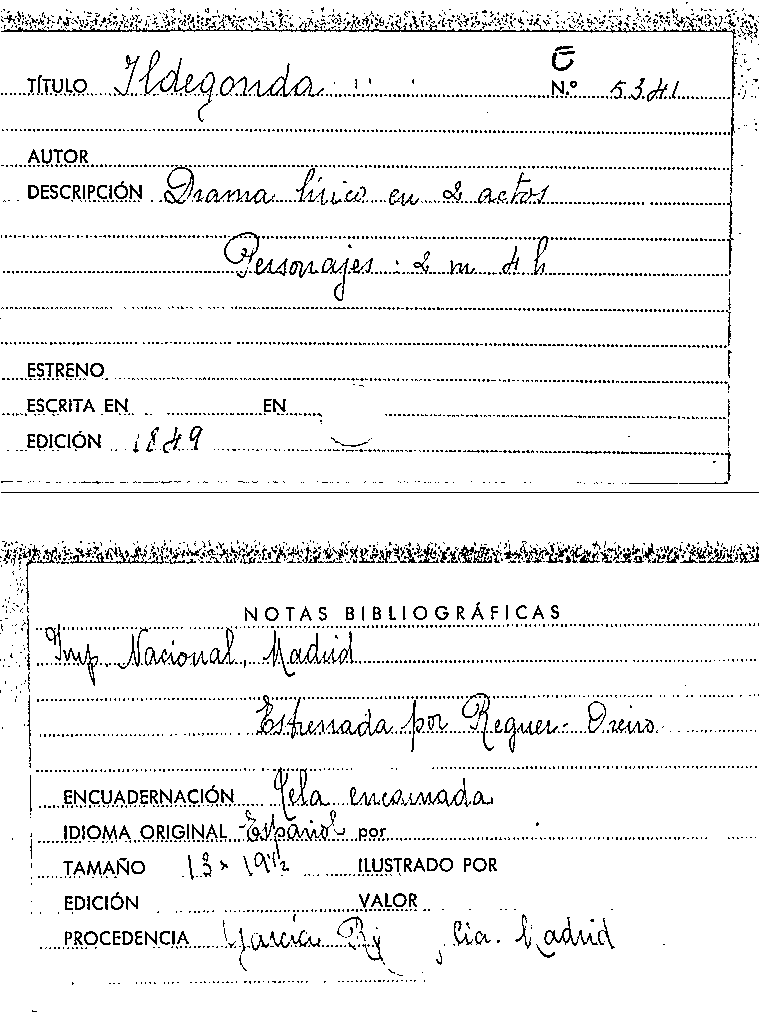 C
TÍTULO Ildegonda N.º 5341
AUTOR
DESCRIPCIÓN Drama lírico en 2 actos
Personajes: 2 m 4 h
ESTRENO
ESCRITA EN EN
EDICIÓN 1849
NOTAS BIBLIOGRÁFICAS
Imp. Nacional, Madrid
Estrenada por Reguer - Oreiro
ENCUADERNACIÓN Tela encarnada
IDIOMA ORIGINAL Español por
TAMAÑO 13 x 19½ ILUSTRADO POR
EDICIÓN VALOR
PROCEDENCIA García Madrid